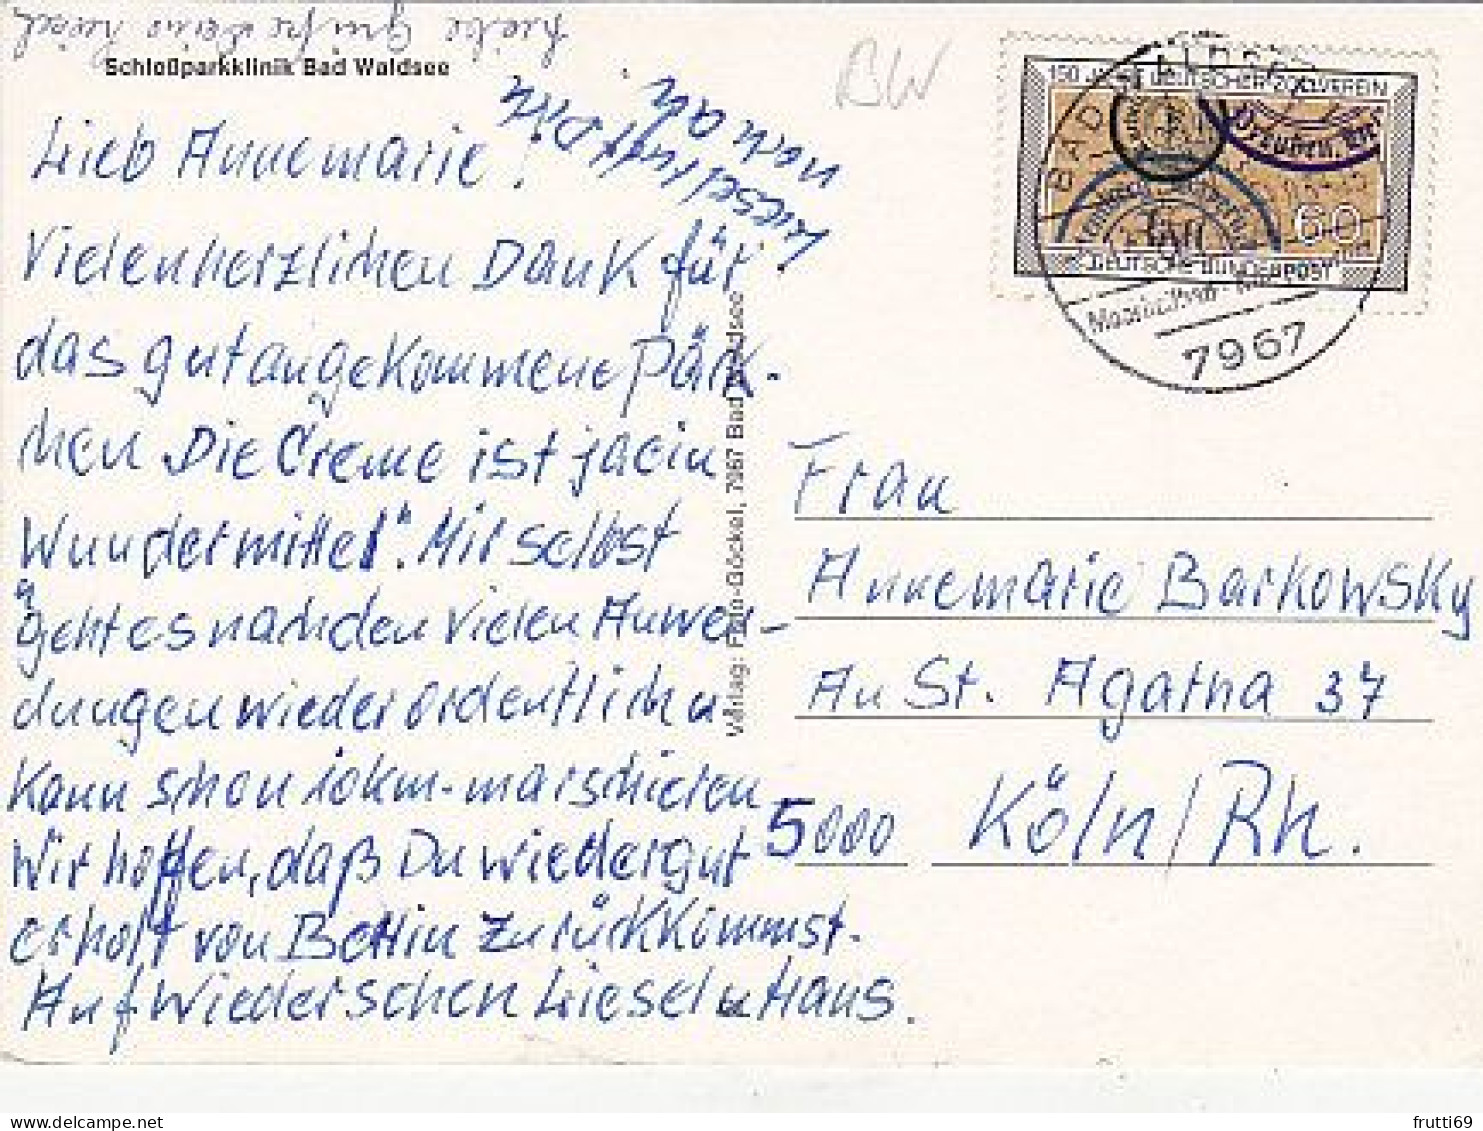 Liebe Grüße Deine Liesel
Schloßparkklinik Bad Waldsee
Lieb Annemarie!
Vielen herzlichen Dank für
das gut angekommene Päck-
chen Die Creme ist ja ein
"Wundermittel". Mir selbst
geht es nach den vielen Anwen-
dungen wieder ordentlich u
kann schon 10km-marschieren
Wir hoffen, daß Du wieder gut
erholt von Bettin zurückkommst.
Auf Wiedersehen Liesel u Hans.
Liesel
noch an
Verlag: Foto-Göckel, 7967 Bad Waldsee
BW
150 JAHRE DEUTSCHER ZOLLVEREIN
60
DEUTSCHE BUNDESPOST
BAD WALDSEE
7967
Frau
Annemarie Barkowsky
An St. Agatha 37
5000 Köln/Rh.
frutti69